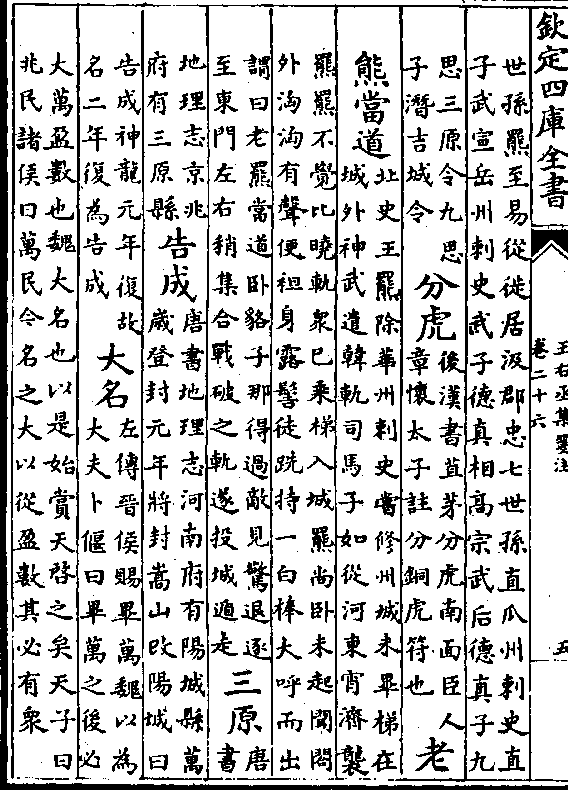 欽定四庫全書
王右丞集箋注
卷二十六
五
世孫羆至易從徙居汲郡忠七世孫直瓜州刺史直
子武宣岳州刺史武子德真相高宗武后德真子九
思三原令九思
子潛吉城令
分虎
後漢書苴茅分虎南面臣人
章懷太子註分銅虎符也
老
熊當道
北史王羆除華州刺史嘗修州城未畢梯在
城外神武遣韓軌司馬子如從河東宵濟襲
羆羆不覺比曉軌衆已乘梯入城羆尚卧未起聞閤
外洶洶有聲便袒身露髻徒跣持一白棒大呼而出
謂曰老羆當道卧貉子那得過敵見驚退逐
至東門左右稍集合戰破之軌遂投城遁走
三原
唐
書
地理志京兆
府有三原縣
告成
唐書地理志河南府有陽城縣萬
歲登封元年將封嵩山改陽城曰
告成神龍元年復故
名二年復為告成
大名
左傳晉侯賜畢萬魏以為
大夫卜偃曰畢萬之後必
大萬盈數也魏大名也以是始賞天啓之矣天子曰
兆民諸侯曰萬民今名之大以從盈數其必有衆